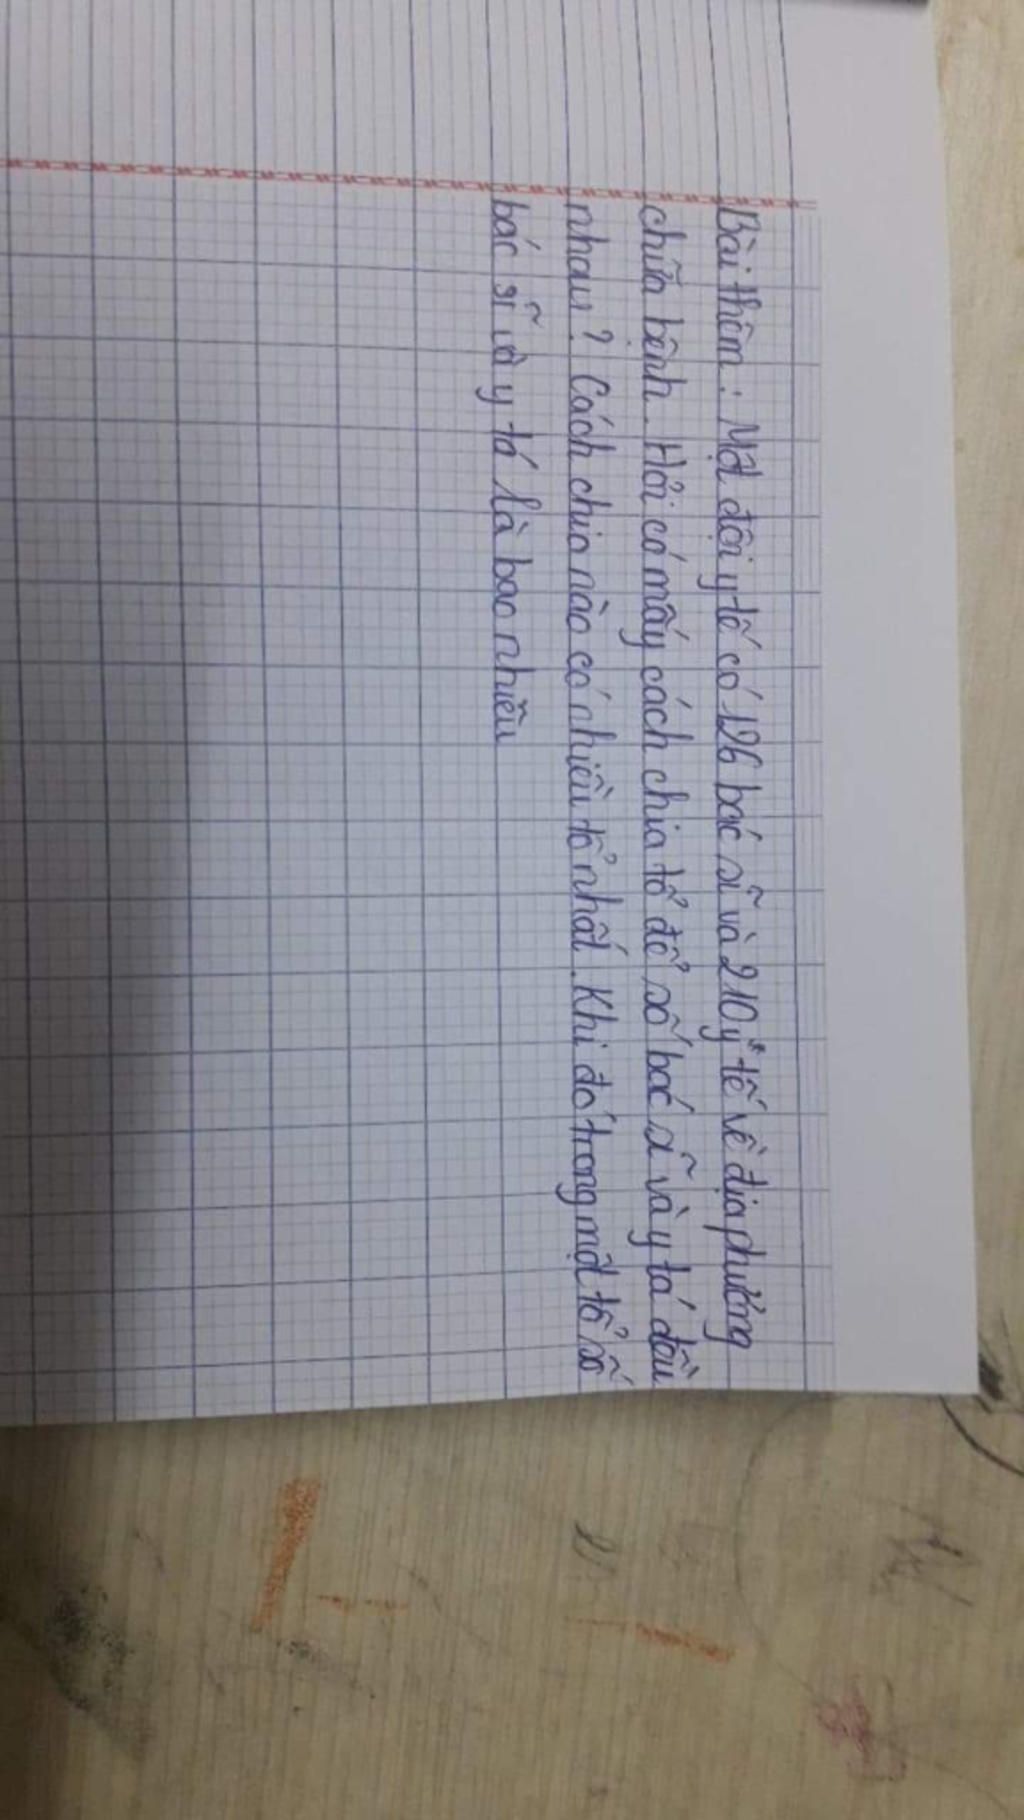 Bài thêm: Một đội y tế có 126 bác sĩ và 210 y tế về địa phương
chữa bệnh. Hỏi có mấy cách chia tổ để số bác sĩ và y tá đều
nhau? Cách chia nào có nhiều tổ nhất. Khi đó trong một tổ số
bác sĩ và y tá là bao nhiêu